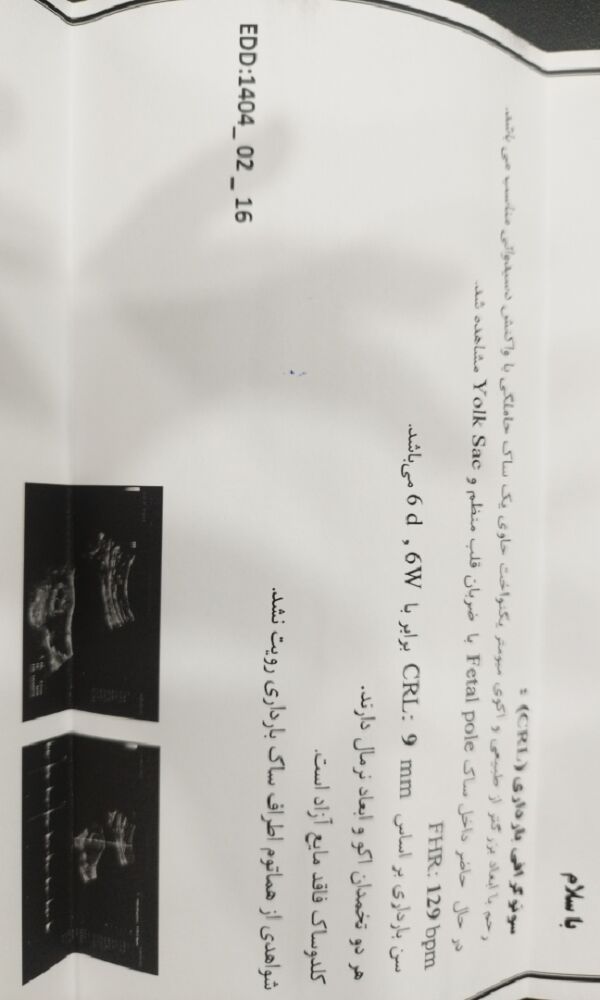 با سلام
سونوگرافی بارداری (CRL) :
رحم با ابعاد بزرگتر از طبیعی و اکوی میومتر یکنواخت حاوی یک ساک حاملگی با واکنش دسیدوائی مناسب می باشد.
در حال حاضر داخل ساک Fetal pole با ضربان قلب منظم و Yolk Sac مشاهده شد.
FHR: 129 bpm
سن بارداری بر اساس CRL: 9 mm برابر با 6W , 6 d می‌باشد.
هر دو تخمدان اکو و ابعاد نرمال دارند.
کلدوساک فاقد مایع آزاد است.
شواهدی از هماتوم اطراف ساک بارداری رویت نشد.
EDD:1404_ 02 _ 16